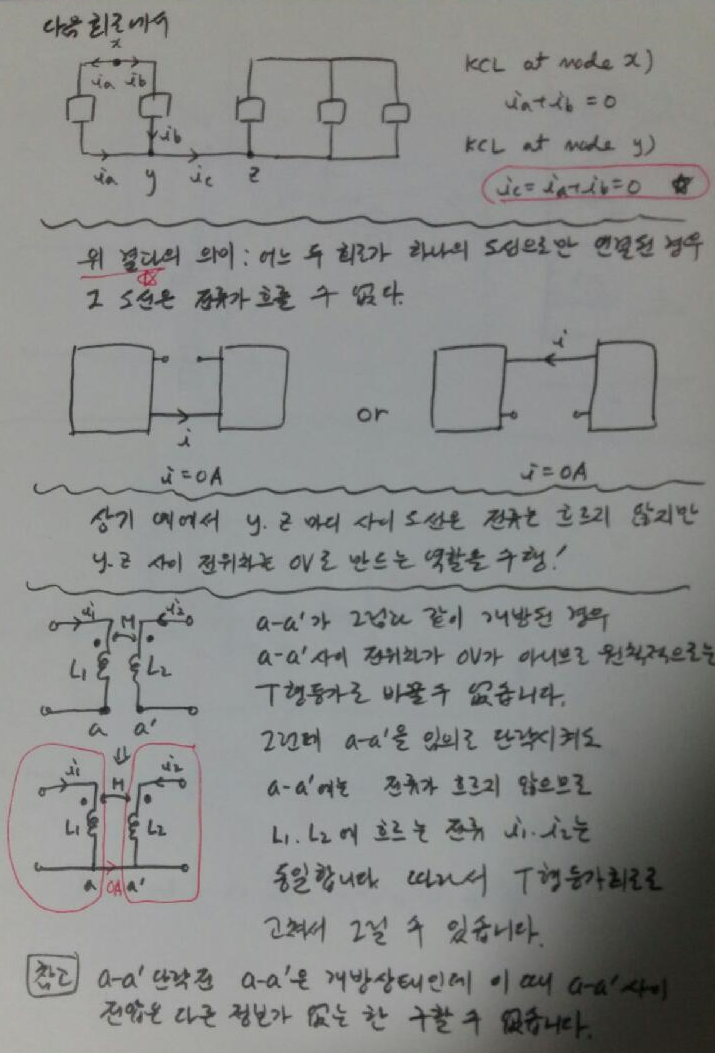 다음 회로에서
x
ia ib
ib
ia y ic z
KCL at node x)
ia+ib=0
KCL at node y)
ic=ia+ib=0 ☆
위 결과의 의미: 어느 두 회로가 하나의 도선으로만 연결된 경우
그 도선은 전류가 흐를 수 없다.
i
i=0A
or
i
i=0A
상기 예에서 y.z 마디 사이 도선은 전류는 흐르지 않지만
y.z 사이 전위차는 0V로 만드는 역할을 수행!
i1 M i2
L1 L2
a a'
a-a'가 그림과 같이 개방된 경우
a-a'사이 전위차가 0V가 아니므로 원칙적으로는
T형등가로 바꿀 수 없습니다.
그런데 a-a'을 임의로 단락시켜도
a-a'에는 전류가 흐르지 않으므로
L1. L2에 흐르는 전류 i1. i2는
동일합니다. 따라서 T형등가회로로
고쳐서 그릴 수 있습니다.
i1 M i2
L1 L2
a 0A a'
참고 a-a' 단락전 a-a'은 개방상태인데 이 때 a-a'사이
전압은 다른 정보가 없는 한 구할 수 없습니다.